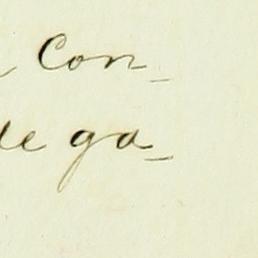 Con-
de ga-